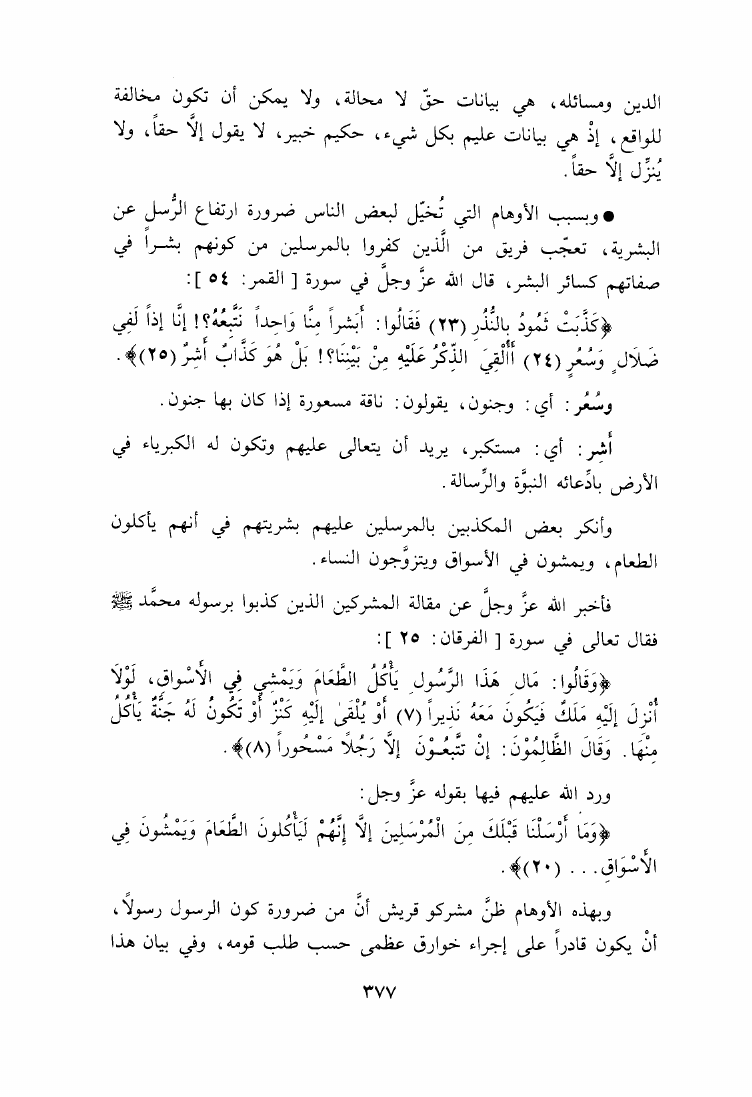 الدين ومسائله، هي بيانات حقّ لا محالة، ولا يمكن أن تكون مخالفة
للواقع، إذْ هي بيانات عليم بكل شيء، حكيم خبير، لا يقول إلَّا حقاً، ولا
يُنزِّل إلَّا حقاً.
● وبسبب الأوهام التي تُخيّل لبعض الناس ضرورة ارتفاع الرُّسل عن
البشرية، تعجّب فريق من الَّذين كفروا بالمرسلين من كونهم بشـراً في
صفاتهم كسائر البشر، قال الله عزَّ وجلَّ في سورة [ القمر: ٥٤ ]:
﴿كَذَّبَتْ ثَمُودُ بِالنُّذُرِ (٢٣) فَقَالُوا: أَبَشَراً مِنَّا وَاحِداً نَتَّبِعُهُ؟! إِنَّا إِذاً لَفِي
ضَلَالٍ وَسُعُرٍ (٢٤) أَأُلْقِيَ الذِّكْرُ عَلَيْهِ مِنْ بَيْنِنَا؟! بَلْ هُوَ كَذَّابٌ أَشِرٌ (٢٥)﴾.
وسُعُر: أي: وجنون، يقولون: ناقة مسعورة إذا كان بها جنون.
أَشِر: أي: مستكبر، يريد أن يتعالى عليهم وتكون له الكبرياء في
الأرض بادِّعائه النبوَّة والرِّسالة.
وأنكر بعض المكذبين بالمرسلين عليهم بشريتهم في أنهم يأكلون
الطعام، ويمشون في الأسواق ويتزوَّجون النساء.
فأخبر الله عزَّ وجلَّ عن مقالة المشركين الذين كذبوا برسوله محمَّد ﷺ
فقال تعالى في سورة [ الفرقان: ٢٥ ]:
﴿وَقَالُوا: مَالِ هَذَا الرَّسُولِ يَأْكُلُ الطَّعَامَ وَيَمْشِي فِي الأَسْوَاقِ، لَوْلَا
أُنْزِلَ إِلَيْهِ مَلَكٌ فَيَكُونَ مَعَهُ نَذِيراً (٧) أَوْ يُلْقَىٰ إِلَيْهِ كَنْزٌ أَوْ تَكُونُ لَهُ جَنَّةٌ يَأْكُلُ
مِنْهَا. وَقَالَ الظَّالِمُوْنَ: إِنْ تَتَّبِعُـوْنَ إِلَّا رَجُلًا مَسْحُوراً (٨)﴾.
ورد الله عليهم فيها بقوله عزَّ وجل:
﴿وَمَا أَرْسَلْنَا قَبْلَكَ مِنَ الْمُرْسَلِينَ إِلَّا إِنَّهُمْ لَيَأْكُلونَ الطَّعَامَ وَيَمْشُونَ فِي
الأَسْوَاقِ... (٢٠)﴾.
وبهذه الأوهام ظنَّ مشركو قريش أنَّ من ضرورة كون الرسول رسولًا،
أنْ يكون قادراً على إجراء خوارق عظمى حسب طلب قومه، وفي بيان هذا
٣٧٧